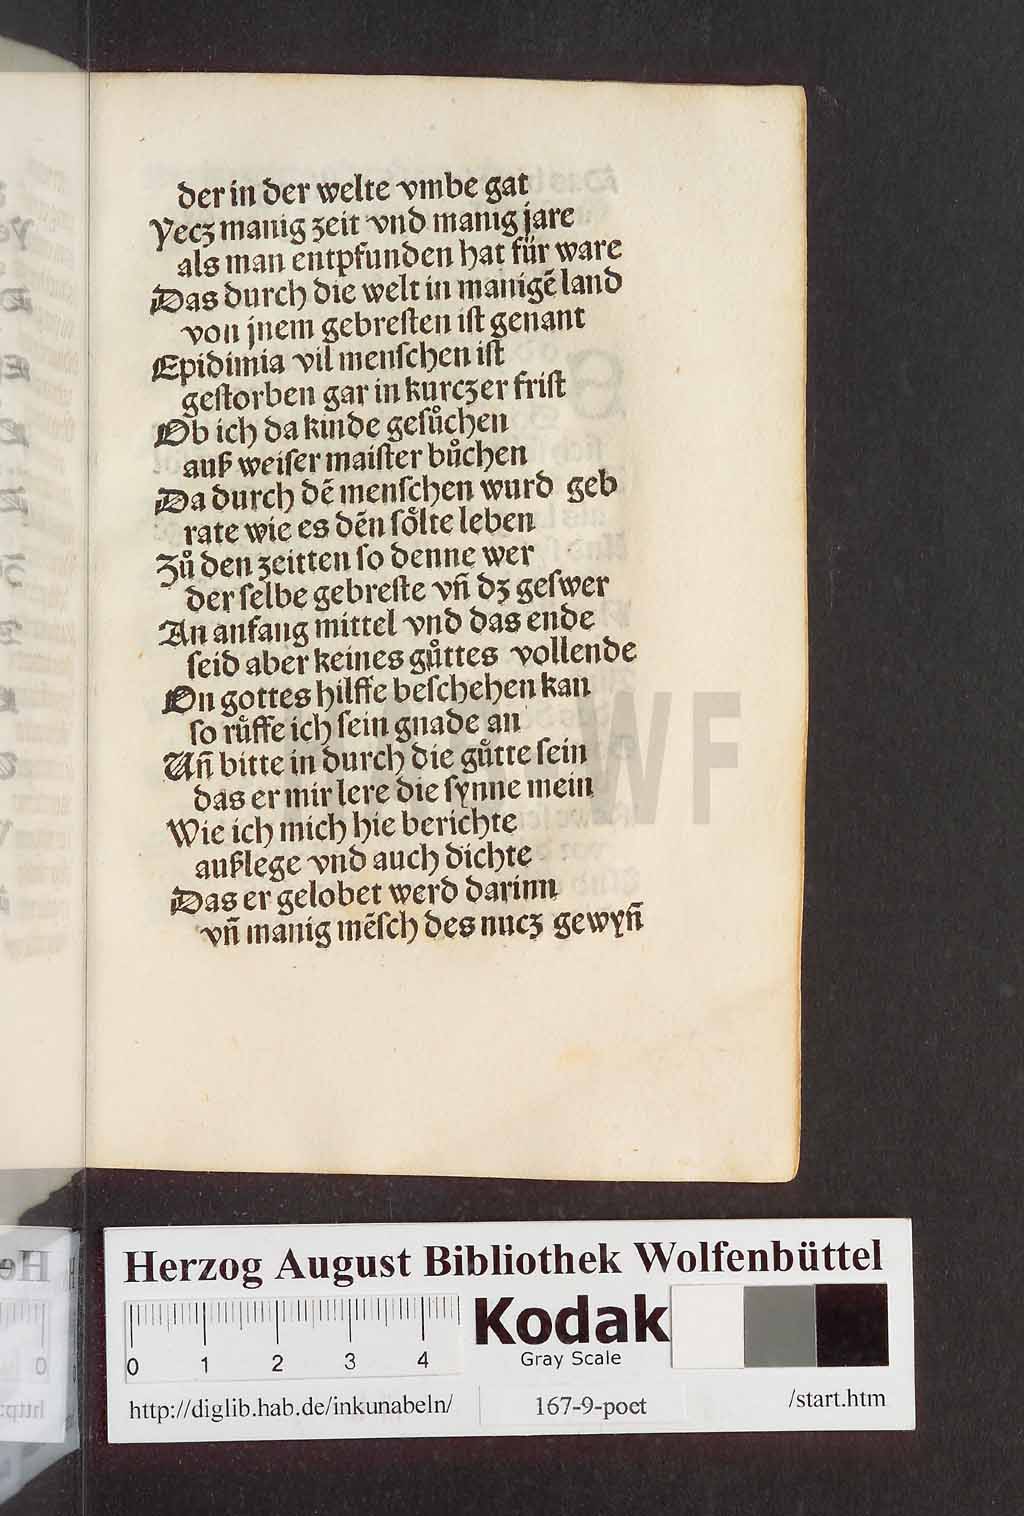 der in der welte vmbe gat
Yecz manig zeit vnd manig jare
als man entpfunden hat für ware
Das durch die welt in manigē land
von jnem gebreſten iſt genant
Epidimia vil menſchen iſt
geſtorben gar in kurczer friſt
Ob ich da kinde geſůchen
auß weiſer maiſter bůchen
Da durch dē menſchen wurd geb
rate wie es dēn ſoͤlte leben
Zů den zeitten ſo denne wer
der ſelbe gebreſte vn̄ dz geſwer
An anfang mittel vnd das ende
ſeid aber keines gůttes vollende
On gottes hilffe beſchehen kan
ſo růffe ich ſein gnade an
Un̄ bitte in durch die gůtte ſein
das er mir lere die ſynne mein
Wie ich mich hie berichte
außlege vnd auch dichte
Das er gelobet werd darinn
vn̄ manig mēſch des nucz gewyn̄
HAB WF
Herzog August Bibliothek Wolfenbüttel
Kodak
Gray Scale
0 1 2 3 4
http://diglib.hab.de/inkunabeln/
167-9-poet
/start.htm